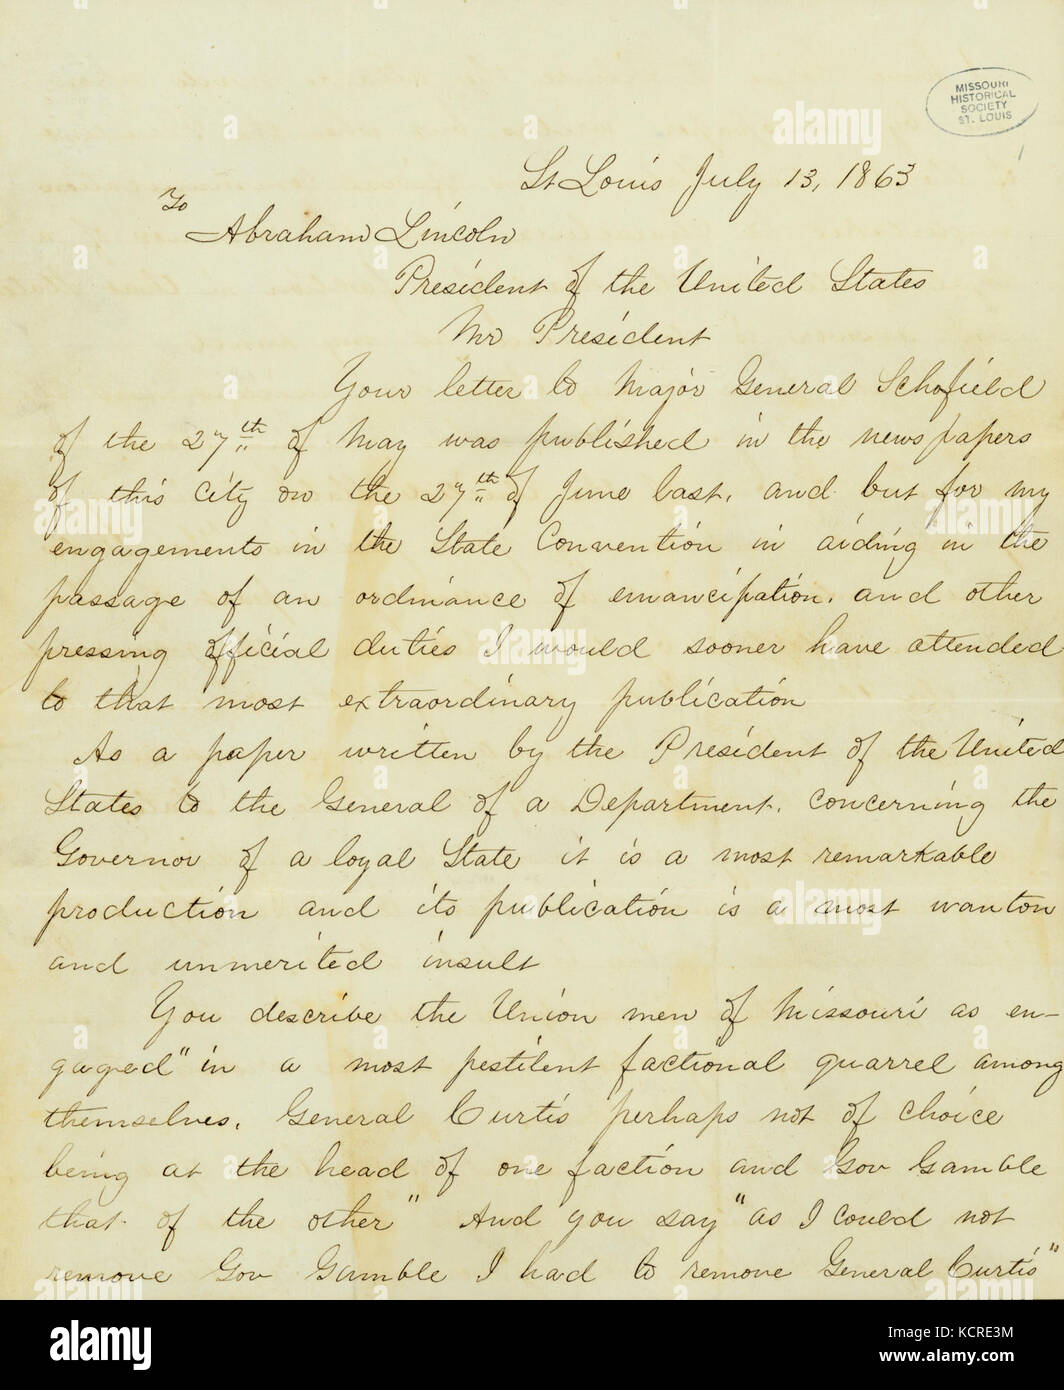 MISSOURI
HISTORICAL
SOCIETY
ST. LOUIS
St Louis July 13, 1863
To
Abraham Lincoln
President of the United States
Mr President
Your letter to Major General Schofield
of the 27th of May was published in the newspapers
of this city on the 27th of June last, and but for my
engagements in the State Convention in aiding in the
passage of an ordinance of emancipation, and other
pressing official duties I would sooner have attended
to that most extraordinary publication
As a paper written by the President of the United
States to the General of a Department, concerning the
Governor of a loyal State it is a most remarkable
production and its publication is a most wanton
and unmerited insult
You describe the Union men of Missouri as en-
gaged "in a most pestilent factional quarrel among
themselves, General Curtis perhaps not of choice
being at the head of one faction and Gov Gamble
that of the other" And you say "as I could not
remove Gov Gamble I had to remove General Curtis"
alamy
Image ID: KCRE3M
www.alamy.com